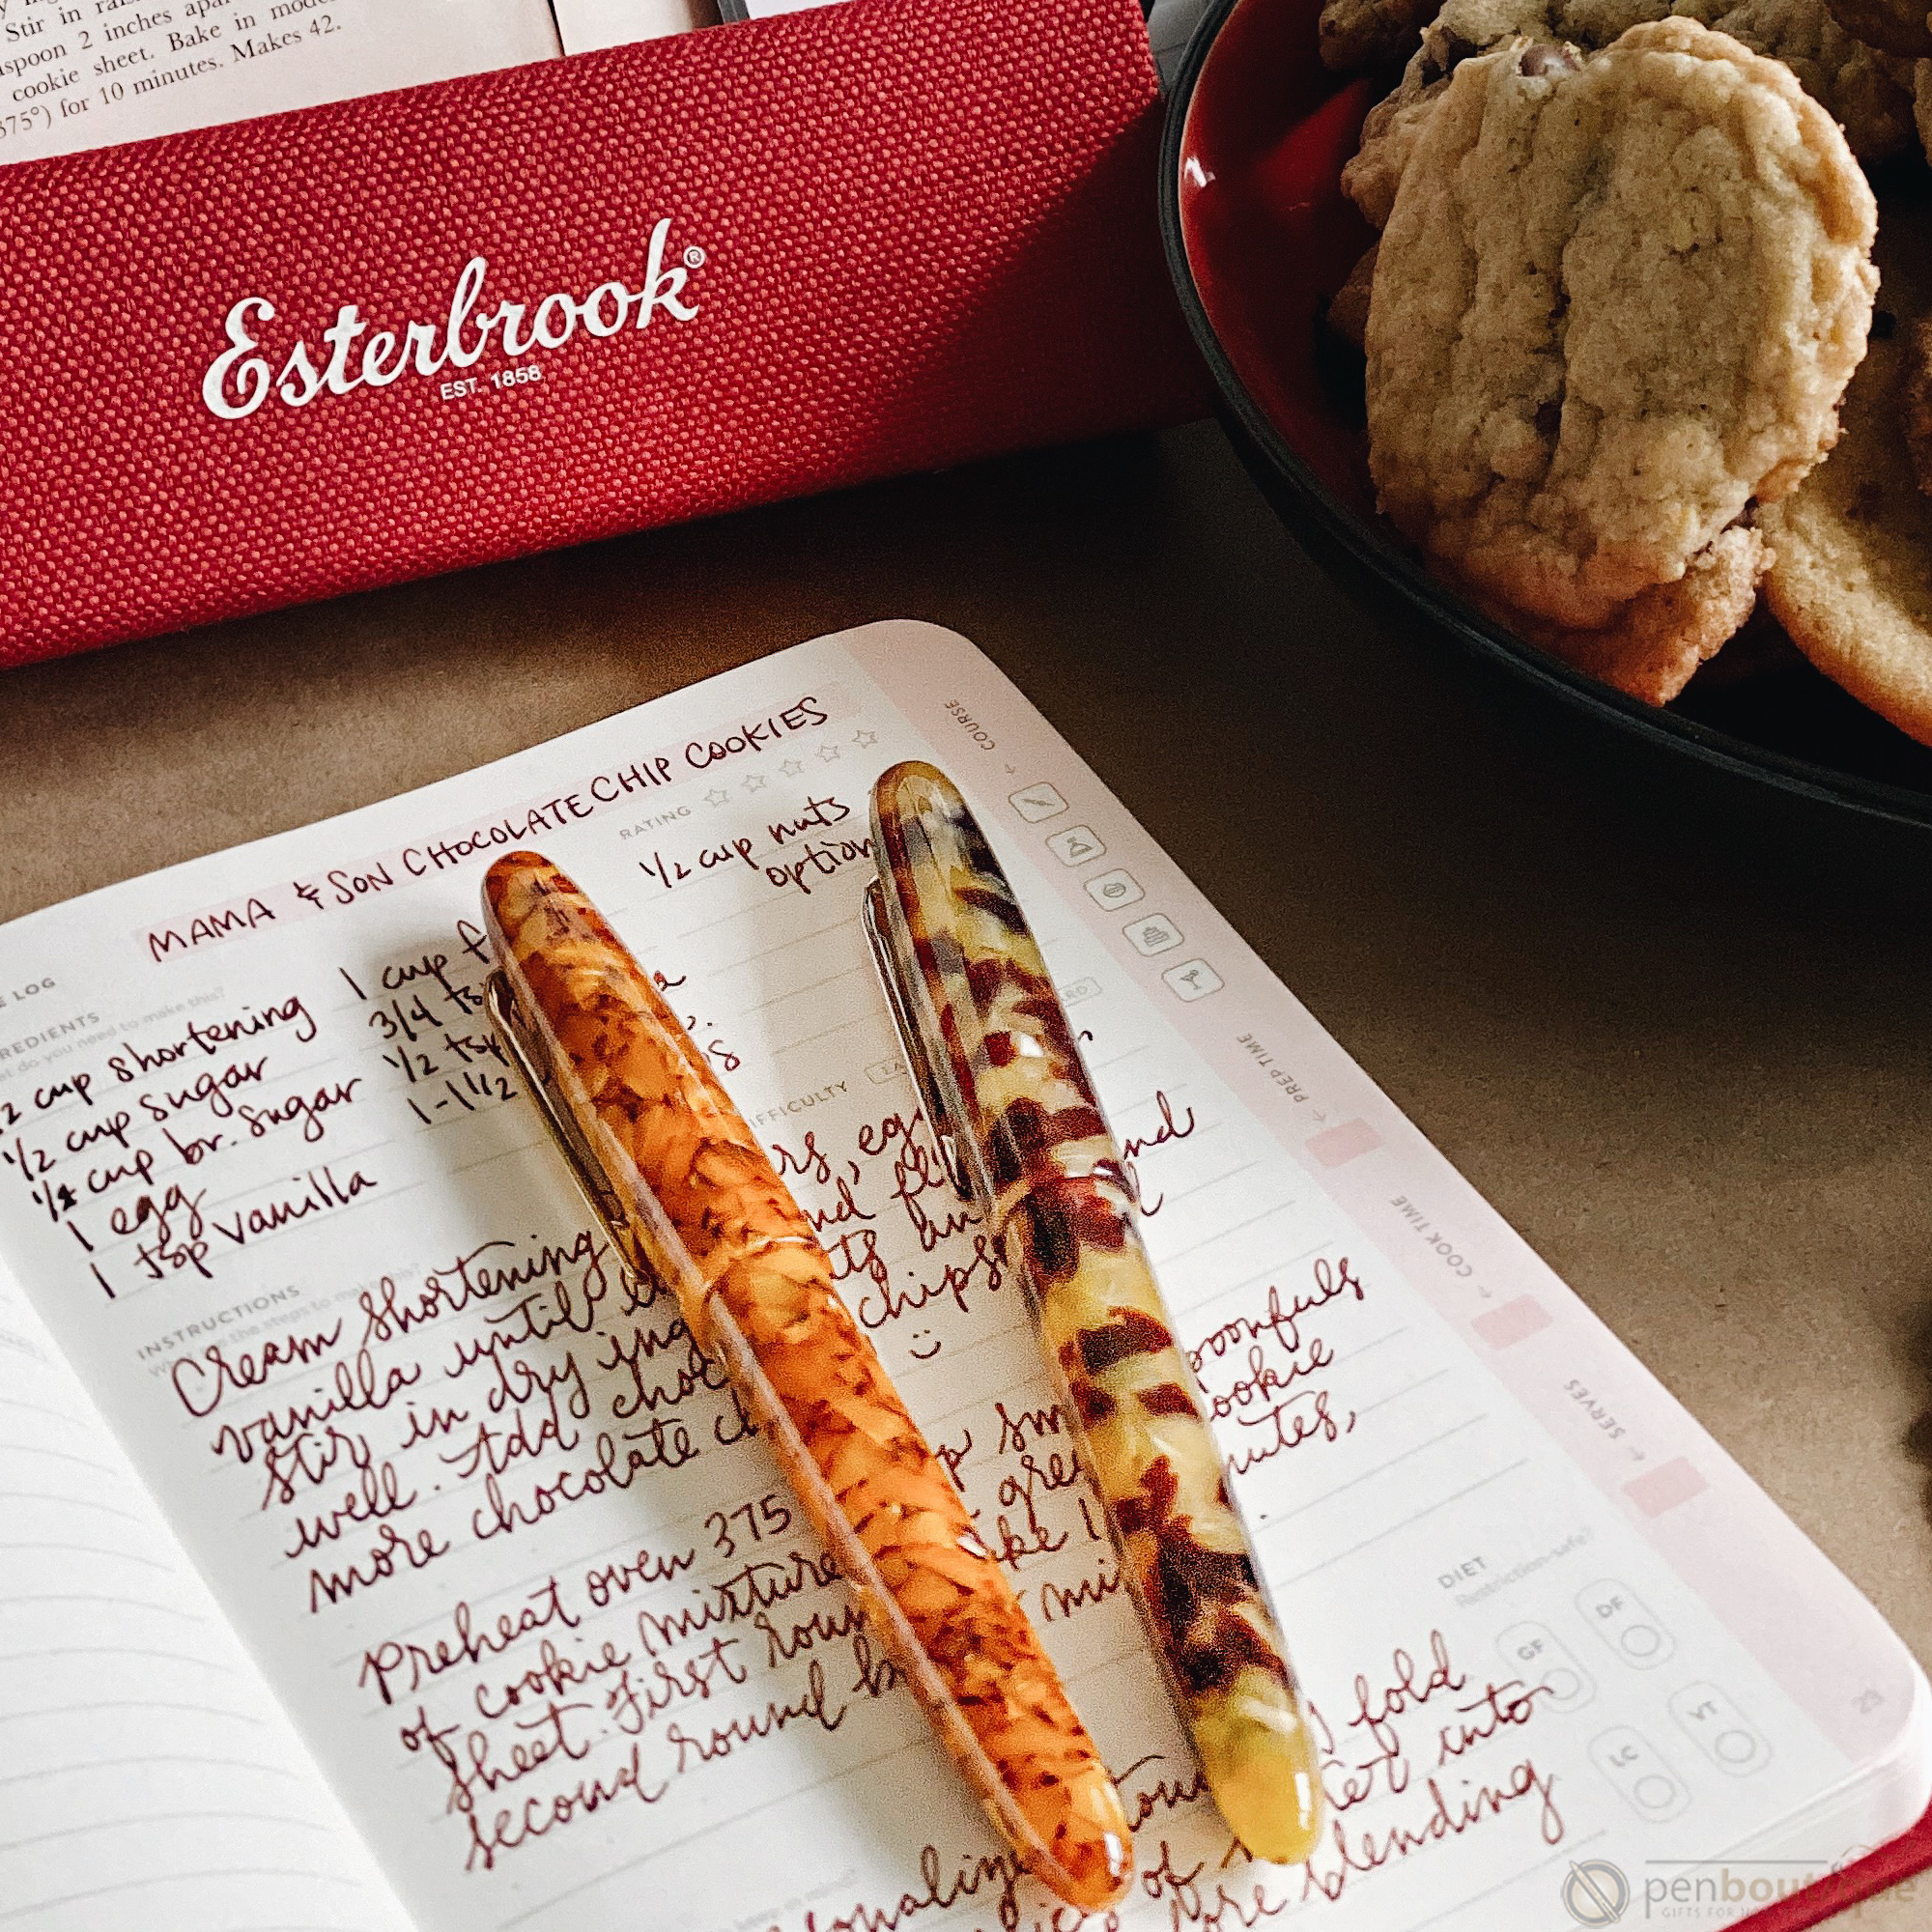 Stir in
spoon 2 inches apa
cookie sheet. Bake in mode
375°) for 10 minutes. Makes 42.
Esterbrook®
EST. 1858
MAMA & SON CHOCOLATE CHIP COOKIES
RATING
COURSE
LOG
REDIENTS
do you need to make this?
2 cup shortening
1/2 cup sugar
1/4 cup br. sugar
1 egg
1 tsp vanilla
1 cup f
3/4 ts
1/2 tsp
1-1 1/2
1/2 cup nuts
option
IFFICULTY
PREP TIME
COOK TIME
SERVES
INSTRUCTIONS
the steps to make this?
Cream shortening rs, eg
vanilla until nd fl nd
stir in dry ing ts an
well. Add choc chips
more chocolate c :)
Preheat oven 375 p sm poonfuls
of cookie mixture gre ookie
sheet. First roun ke 1 nutes,
second round b mi
onalize fold
of into
ore blending
DIET
Restriction-safe?
GF
DF
LC
VT
23
penboutique
GIFTS FOR